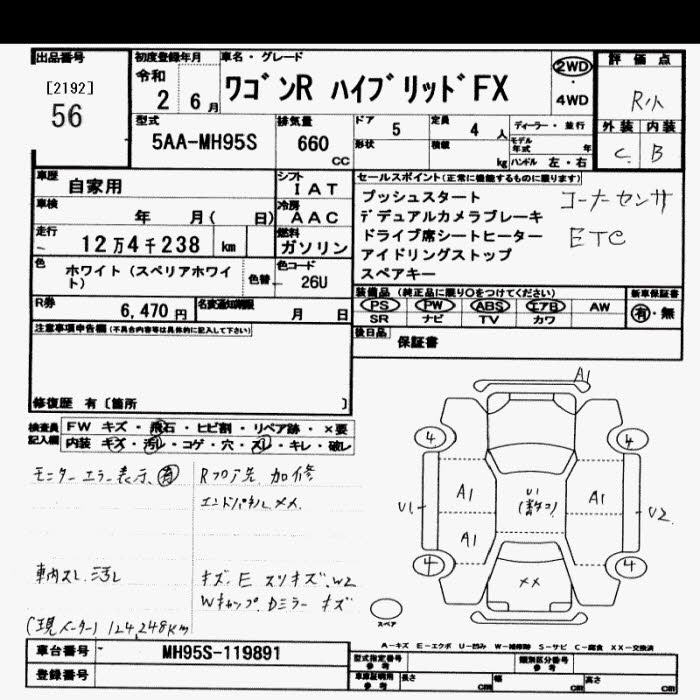 出品番号 初度登録年月 車名・グレード 2WD 評価点
[2192] 令和
56 2 6月 ワゴンR ハイブリッドFX 4WD R小
型式 排気量 ドア 5 定員 4 人 ディーラー・並行 外装 内装
5AA-MH95S 660 CC 形状 積載 kg モデル年式 年 C B
ハンドル 左・右
車歴 自家用 シフト IAT セールスポイント(正常に機能するものに限ります)
車検 年 月( 日) 冷房 AAC プッシュスタート コーナーセンサ
デデュアルカメラブレーキ
走行 12万4千238 km 燃料 ガソリン ドライブ席シートヒーター ETC
アイドリングストップ
色 ホワイト(スペリアホワイト) 色替 色コード 26U スペアキー
R券 6,470円 名変通知期限 月 日 装備品(純正品に限り○をつけてください) 新車保証書
PS PW ABS エアB AW 有・無
SR ナビ TV カワ
注意事項申告欄(不具合内容等は具体的に記入して下さい) 後日品 保証書
修復歴 有〔箇所 〕
検査員記入欄 FW キズ・飛石・ヒビ割・リペア跡・×要
内装 キズ・汚レ・コゲ・穴・スレ・キレ・破レ
モニターエラー表示、有 Rフロア先 加修
エンドパネルメメ
車内スレ 汚レ キズ、E スリキズ、W2
Wキャップ、Dミラー キズ
(現メーター) 124,248Km
A1
4 4
A1 U1 A1
U1 U2
A1
4 4
××
スペア
A-キズ E-エクボ U-凹み W-補修跡 S-サビ C-腐食 XX-交換済
車台番号 MH95S-119891 型式指定番号 参考 類別区分番号 参考
登録番号 車庫証明用 参考 長さ cm 幅 cm 高さ cm